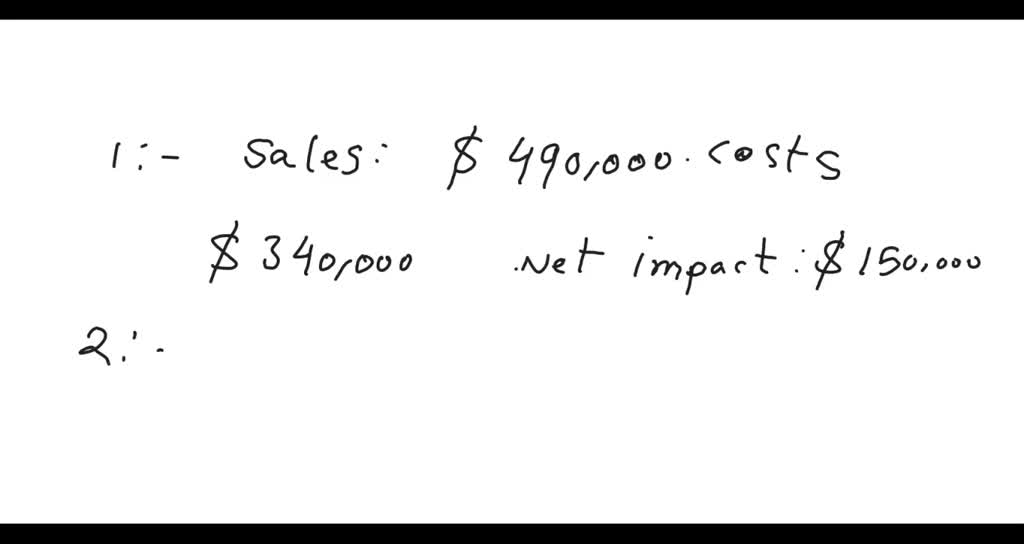 1:- Sales: $ 490,000. costs
$ 340,000 .Net impact: $ 150,000
2:-